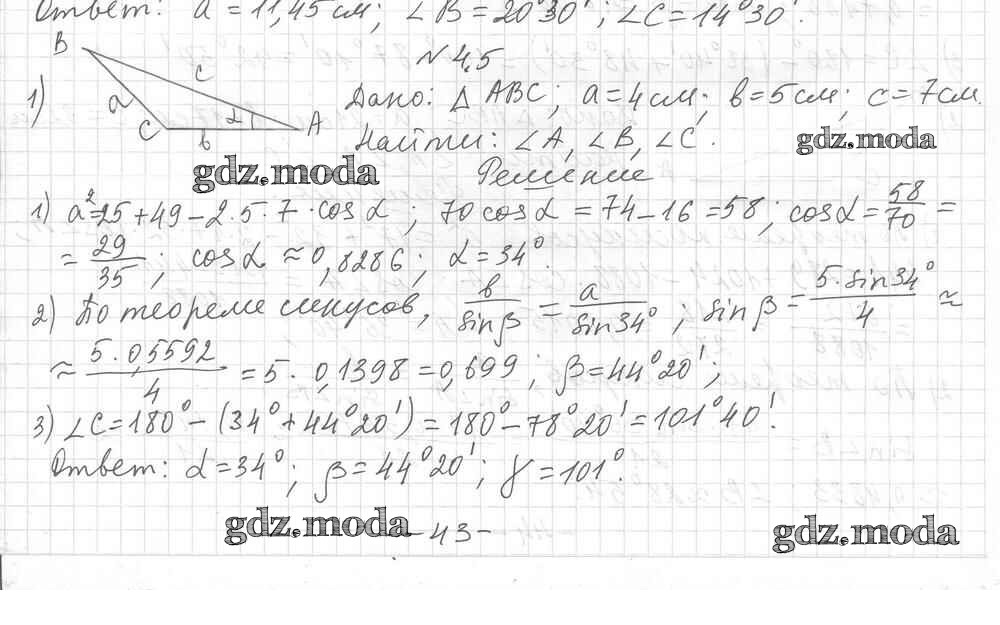 Ответ: a = 11,45 см; ∠B = 20°30'; ∠C = 14°30'.
N 4,5
1) B a c C b α A
Дано: △ ABC; a = 4 см; b = 5 см; c = 7 см.
Найти: ∠A, ∠B, ∠C.
gdz.moda
gdz.moda
Решение
1) a² = 25 + 49 − 2·5·7·cos α; 70 cos α = 74 − 16 = 58; cos α = 58/70 =
= 29/35; cos α ≈ 0,8286; α = 34°.
2) По теореме синусов, b/sin β = a/sin 34°; sin β = 5·sin 34°/4 ≈
≈ 5·0,5592/4 = 5·0,1398 = 0,699; β = 44°20';
3) ∠C = 180° − (34° + 44°20') = 180° − 78°20' = 101°40'.
Ответ: α = 34°; β = 44°20'; γ = 101°.
gdz.moda
- 43 -
gdz.moda